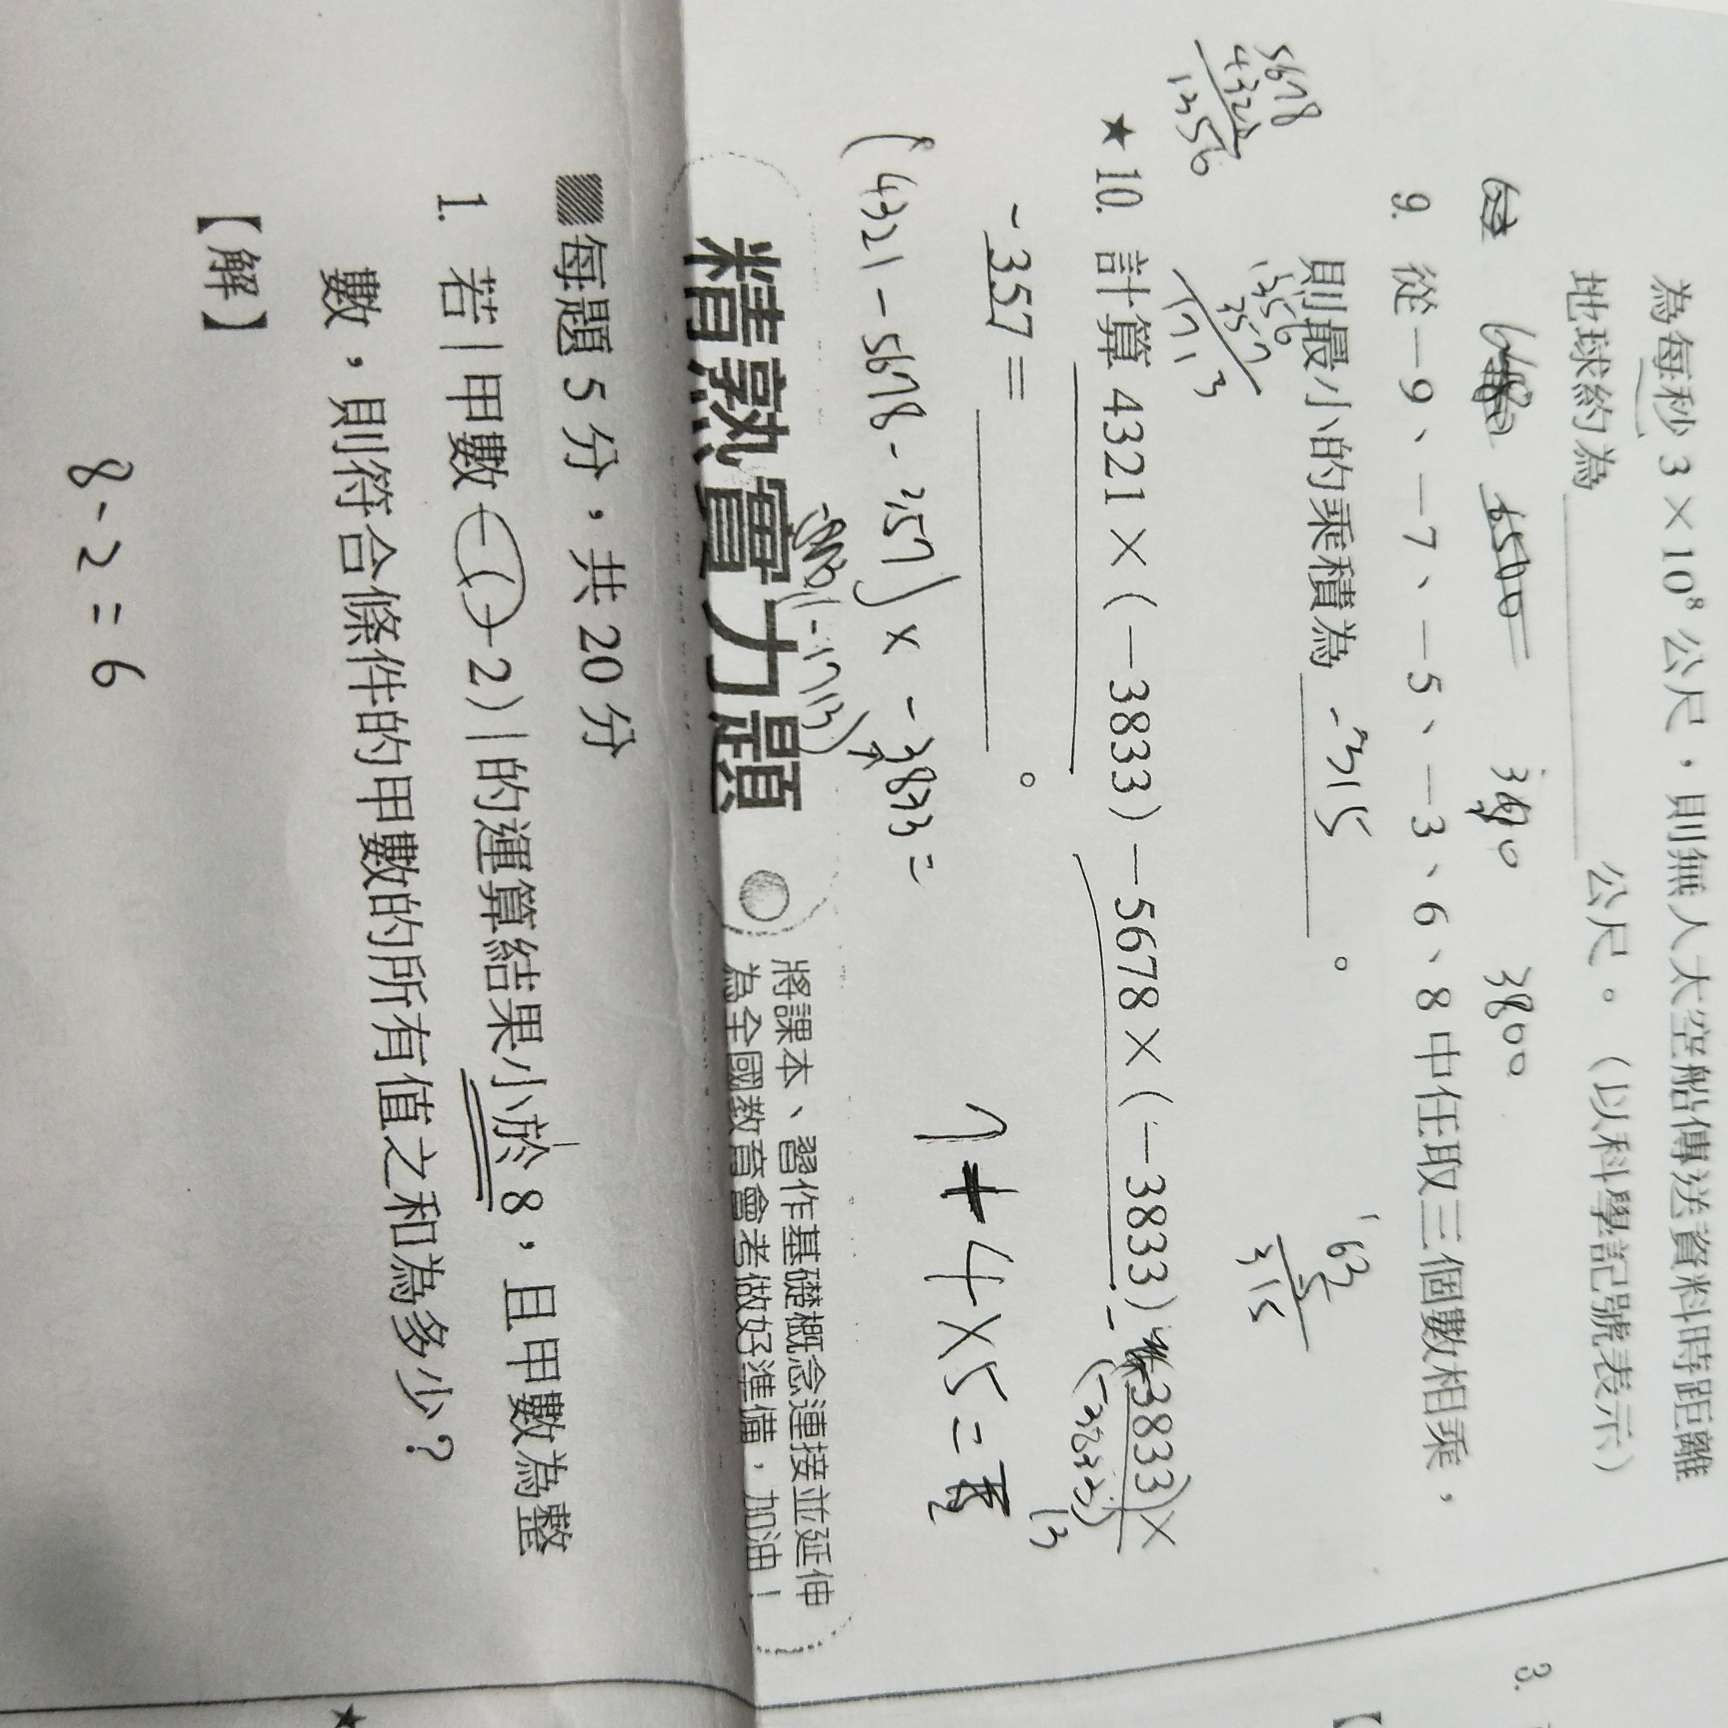 為每秒 3×10⁸ 公尺，則無人太空船傳送資料時距離
地球約為 公尺。（以科學記號表示）
6500=
3800
9. 從－9、－7、－5、－3、6、8中任取三個數相乘，
則最小的乘積為 -315 。
63
5
315
5678
4321
1356
1356
357
1713
★10. 計算 4321×(－3833)－5678×(－3833)－3833×
(-3833)
－357＝ 。
(4321-5678-357)×-3833=
(-1713)×
1+4×5=
精熟實力題
將課本、習作基礎概念連接並延伸
為全國教育會考做好準備，加油！
每題 5 分，共 20 分
1. 若｜甲數－(－2)｜的運算結果小於 8，且甲數為整
數，則符合條件的甲數的所有值之和為多少？
【解】
8-2=6
3.
★